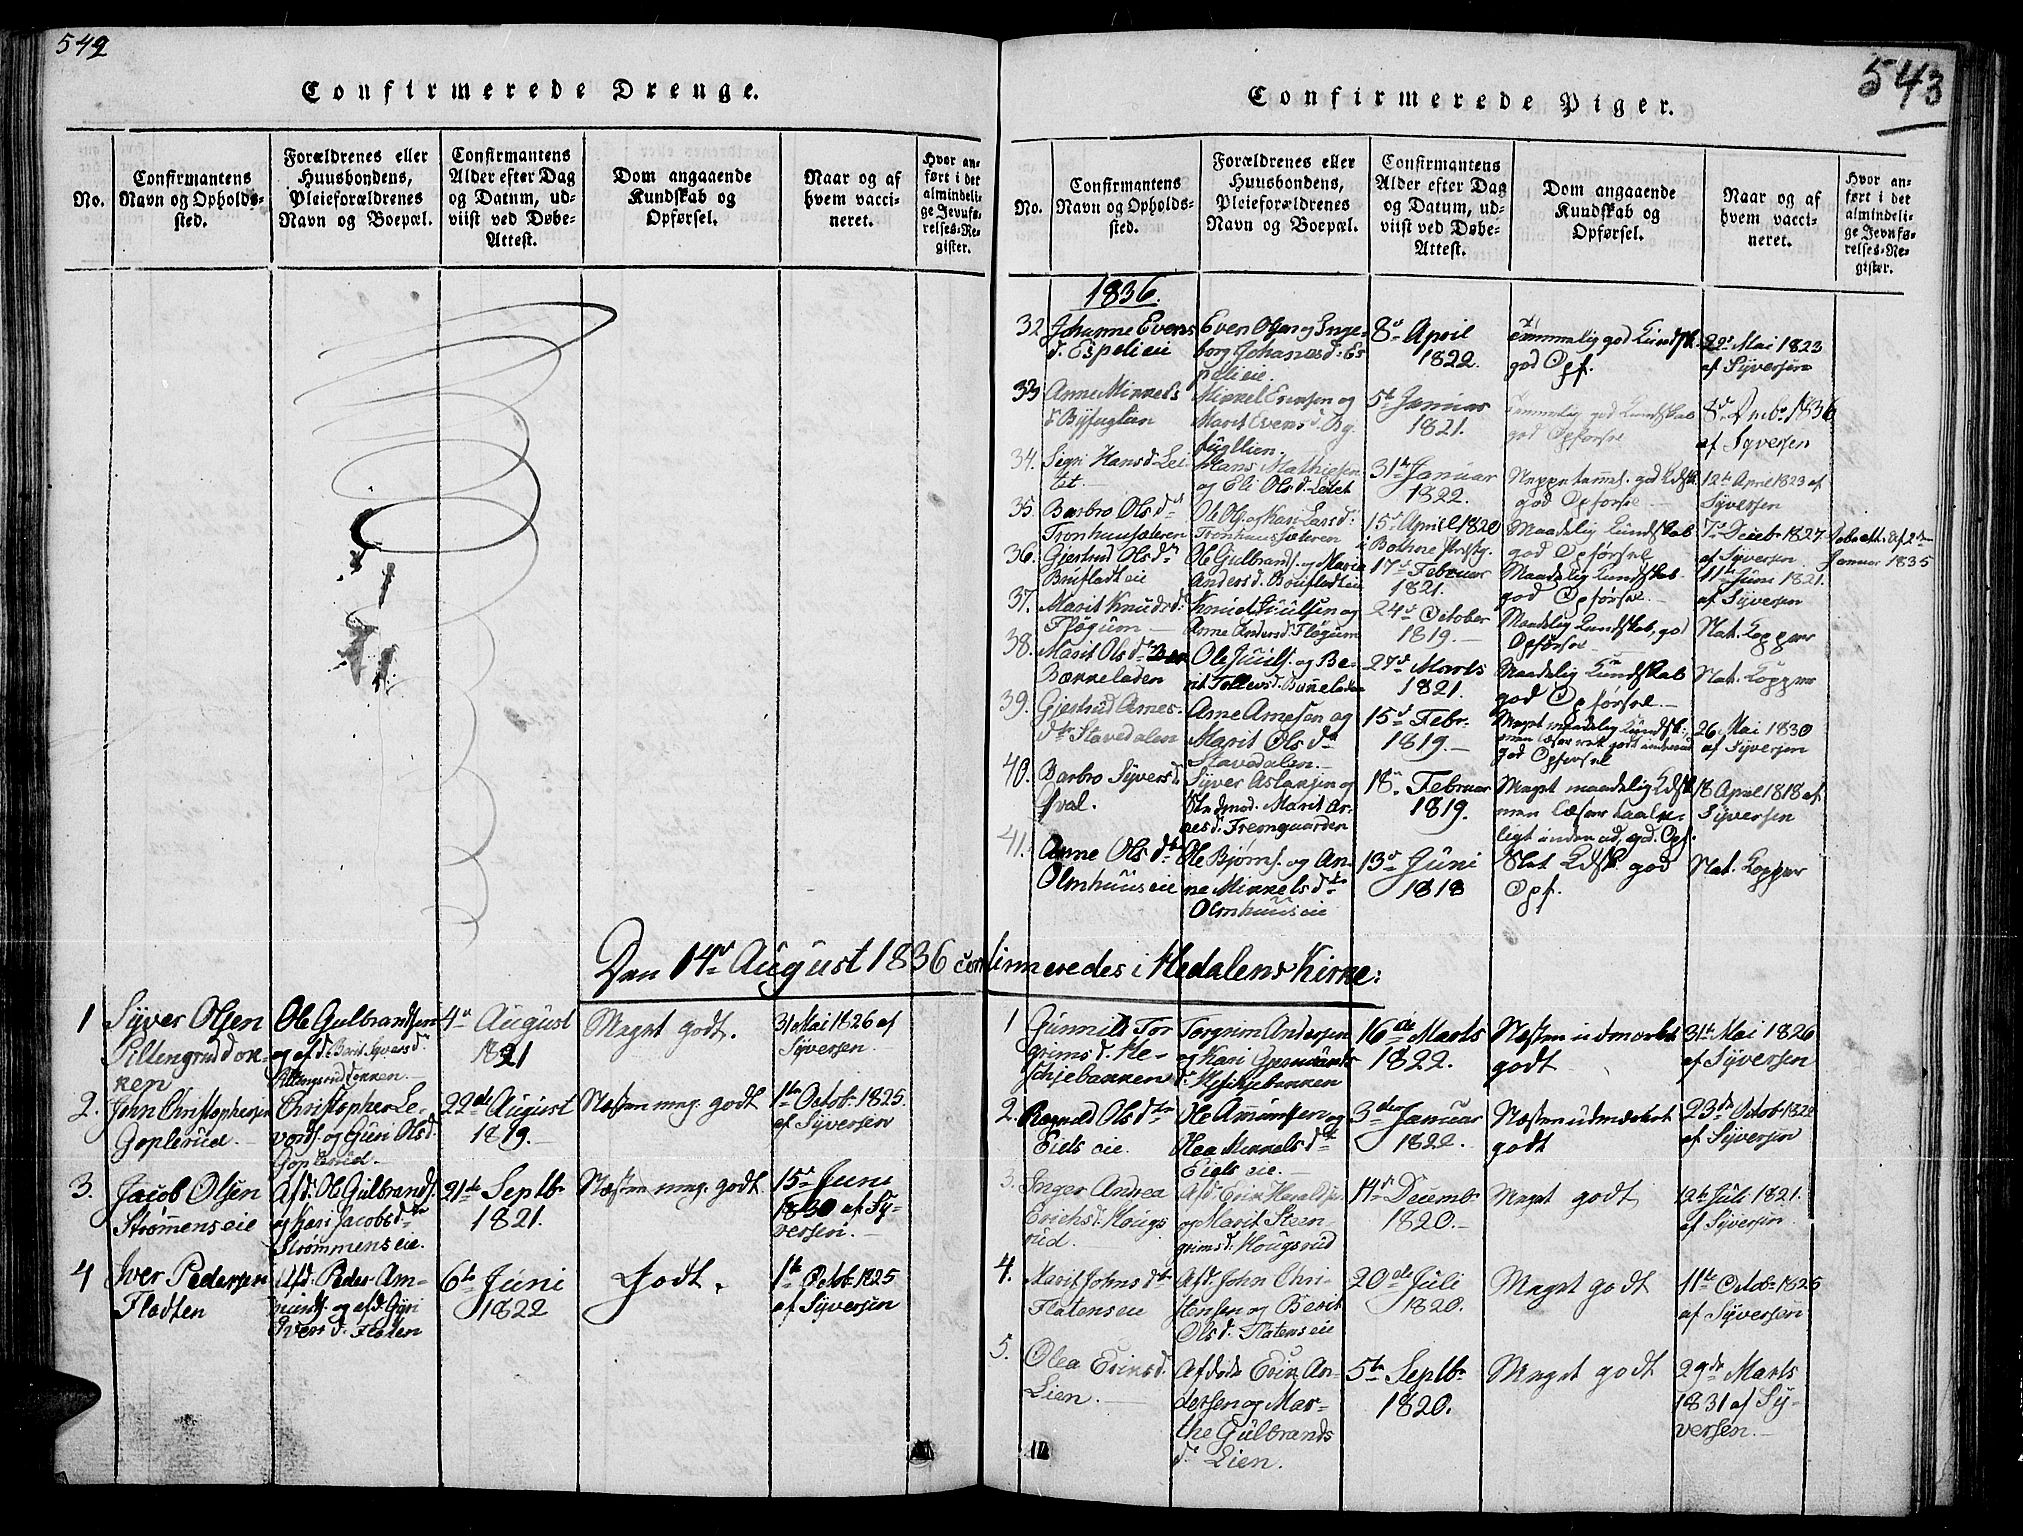 542
Confirmerede Drenge.
No.
Confirmantens
Navn og Opholds-
sted.
Forældrenes eller
Huusbondens,
Pleieforældrenes
Navn og Boepæl.
Confirmantens
Alder efter Dag
og Datum, ud-
viist ved Døbe-
Attest.
Dom angaaende
Kundskab og
Opførsel.
Naar og af
hvem vacci-
neret.
Hvor an-
ført i det
almindeli-
ge Jevnfø-
relses-Re-
gister.
1
Syver Olsen
Piltengruddok-
ken
Ole Gulbrandsen
og afd. Berit Syversdr
Piltengruddokken.
4de August
1821
Meget godt.
31 Mai 1826 af
Syversen.
2.
John Christophersen
Goplerud.
Christopher Le-
vords. og Guri Olsd.
Goplerud.
22de August
1819.
Næsten meg. godt
1te Octob. 1825.
af Syversen
3.
Jacob Olsen
Strømmenseie
Afd. Ole Gulbrands.
og Kari Jacobsdtr
Strømmenseie.
21de Septbr
1821.
Næsten meg. godt
15de Juni
1830 af Sy-
versen.
4
Iver Pedersen
Fladten
Afd. Peder Am-
unds. og afd. Gyri
Iversd. Flaten
6te Juni
1822
Godt.
1te Octob 1825
af Syversen
543
Confirmerede Piger.
No.
Confirmantens
Navn og Opholds-
sted.
Forældrenes eller
Huusbondens,
Pleieforældrenes
Navn og Boepæl.
Confirmantens
Alder efter Dag
og Datum, ud-
viist ved Døbe-
Attest.
Dom angaaende
Kundskab og
Opførsel.
Naar og af
hvem vacci-
neret.
Hvor an-
ført i det
almindeli-
ge Jevnfø-
relses-Re-
gister.
1836.
32
Johanne Evens
d. Espelieie
Even Olsen og Inge-
borg Johannesd. Es
pelieie.
8de April
1822.
Temmelig god Kundsk.
god Opf.
29de Mai 1823
af Syversen
33
Anne Mikkels
d. Byfuglien
Mikkel Eriksen og
Marit Evensd. By
fuglien.
5te Januar
1821.
Temmelig god Kundskab
god Opførsel
8de Decbr. 1836
af Syversen
34.
Segri Hansd. Lei-
tet.
Hans Mathiesen
og Eli Olsd. Leitet
31te Januar
1822.
Neppe temmel. god Kdsk.
god Opførsel
12te April 1823 af
Syversen
35.
Barbro Olsdtr
Tronhussæteren
Ole Ols. og Kari Larsd.
Tronhussæteren
15de April 1820
i Bothne Prstg.
Maadelig Kundskab
god Opførsel
7de Decbr 1827
af Syversen
Januar 1835
36.
Gjertrud Olsdr
Brufladteie
Ole Gulbrands. og Maria
Andersd. Brufladteie
17de Februar
1821.
Maadelig Kundskab
god Opførsel.
11te Juni 1821.
af Syversen
37.
Marit Knudsd.
Fløgum
Knud Juulsen og
Anne Andersd. Fløgum
24de October
1819.
Maadelig Kundskab, god
Opførsel
Nat. Kopper
38.
Marit Olsdtr
Bænneladen
Ole Juuls. og Be-
rit Tollevsd. Bænneladen
27de Marts
1821.
Maadelig Kundskab
god Opførsel.
Nat. Kopper
39.
Gjertrud Arnes-
dtr Stavedalen
Arne Arnesen og
Marit Olsdtr
Stavedalen.
15de Febr.
1819.
Meget maadelig Kundsk.
men læser ret godt indenad
god Opførsel
26 Mai 1830
af Syversen
40.
Barbro Syversd.
Hval.
Syver Aslaksen og
Stedmod. Marit Ar-
nesd. Fremgaarden
18de Februar
1819.
Meget maadelig Kdsk
men læser taale-
ligt inden ad, god Opf.
18 April 1818 af
Syversen
41.
Anne Olsdtr
Olmhuuseie
Ole Bjørns. og An-
ne Mikkelsdtr
Olmhuuseie
13de Juni
1818
Slet Kdsk. god
Opf.
Nat. Kopper
Den 14de August 1836 confirmeredes i Hedalens Kirke:
1
Gunnild Tor
grimsd. He-
schjebakken
Torgrim Andersen
og Kari
d. Heschjebakken
16de Marts
1822.
Næsten udmærket
godt
31te Mai 1826
af Syversen
2.
Ragnild Olsdtr
Eidseie.
Ole Amundsen og
Kea Mikkelsdtr
Eidseie.
3die Januar
1822.
Næsten udmærket
godt
23de Octob 1822
af Syversen
3.
Inger Andrea
Erichsd. Hougs
rud.
Afd. Erik Heraldsen
og Marit Steen-
grimsd. Hougsrud
14de Decemb.
1820.
Meget godt
12te Juli 1821.
af Syversen
4.
Marit Johnsdtr
Flatenseie
Afd. John Chri-
stensen og Berit
Olsd. Flatenseie
20de Juli
1820.
Meget godt
11te Octob. 1825
af Syversen
5.
Olea Eriksd.
Lien.
Afdøde Erik An-
dersen og Mar-
the Gulbrands
d. Lien.
5te Septbr
1820.
Meget godt
29de Marts
1831 af Sy-
versen.